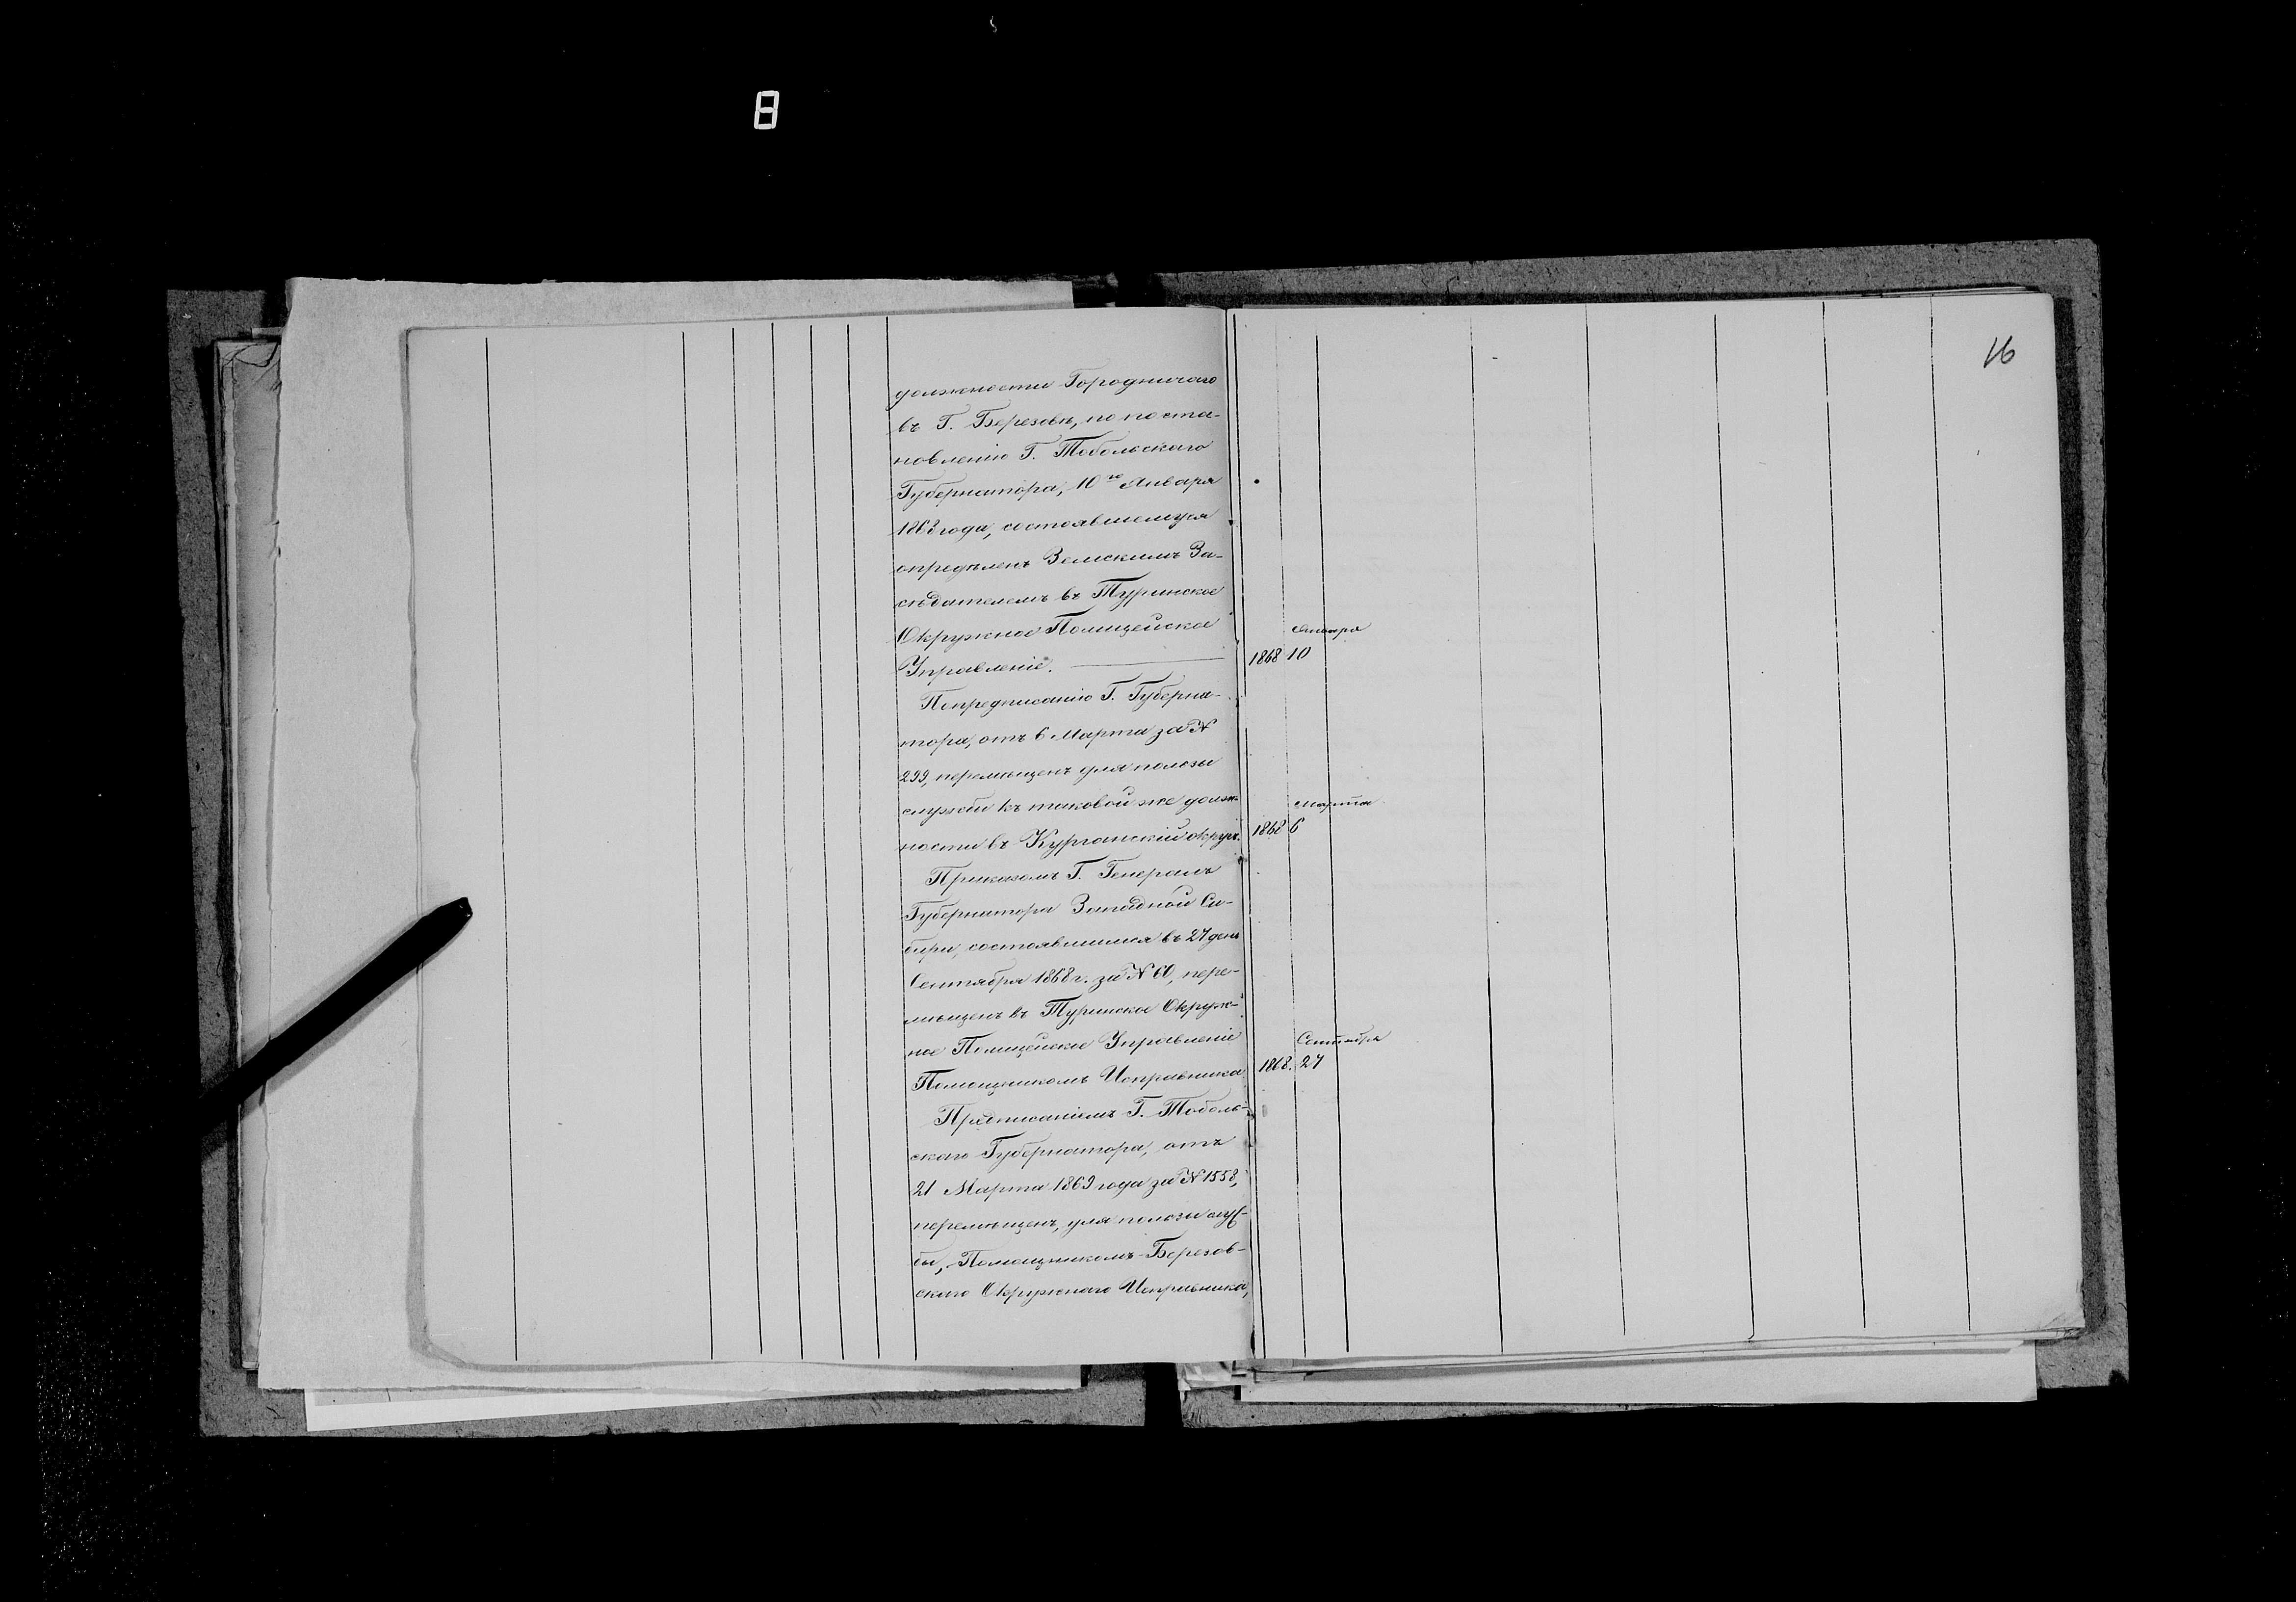 8
16
должности Городничаго
въ Г. Березовѣ, по поста-
новленію Г. Тобольскаго
Губернатора, 10го Января
1868 года, состоявшемуся
опредѣленъ Земскимъ За-
сѣдателемъ въ Туринское
Окружное Полицейское
Января
Управленіе. 1868 10
Попредписанію Г. Губерна-
тора, отъ 6 Марта за №
299, перемѣщенъ для пользы
службы къ таковой же долж-
Марта
ности въ Курганскій округъ. 1868 6
Приказомъ Г. Генералъ
Губернатора Западной Си-
бири, состоявшимся въ 27 день
Сентября 1868 г. за № 60, пере-
мѣщенъ въ Туринское Окруж-
ное Полицейское Управленіе
Сентября
Помощникомъ Исправника. 1868. 27
Предписаніемъ Г. Тоболь-
скаго Губернатора, отъ
21 Марта 1869 года за № 1558,
перемѣщенъ, для пользы служ-
бы, Помощникомъ Березов-
скаго Окружнаго Исправника,